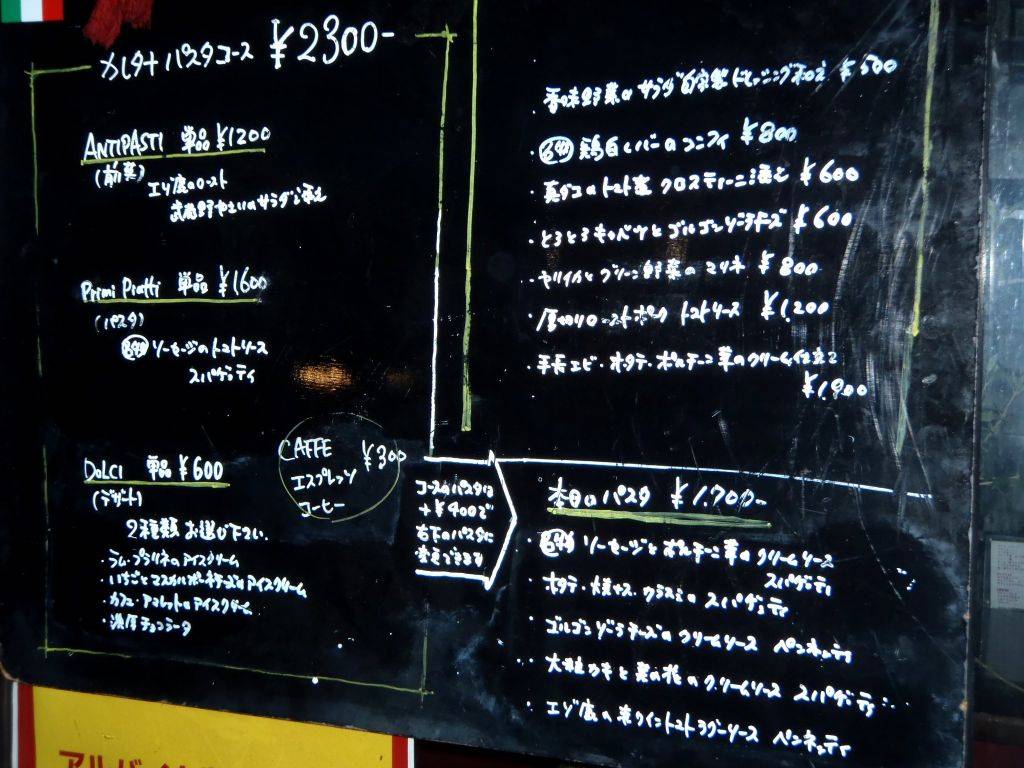 パスタコース ¥2300-
ANTIPASTI 単品 ¥1200
(前菜)
エゾ鹿のロースト
武蔵野やさいのサラダ添え
Primi Piatti 単品 ¥1600
(パスタ)
ソーセージのトマトソース
スパゲッティ
CAFFE ¥300
エスプレッソ
コーヒー
DOLCI 単品 ¥600
(デザート)
2種類お選び下さい
・ラム・プラリネのアイスクリーム
・いちごとマスカルポーネチーズのアイスクリーム
・カフェ・アマレットのアイスクリーム
・濃厚チョコラータ
・香味野菜のサラダ 自家製ドレッシング和え ¥500
・鶏白レバーのコンフィ ¥800
・真ダコのトマト煮 クロスティーニ添え ¥600
・とろとろキャベツとゴルゴンゾーラチーズ ¥600
・ヤリイカとグリーン野菜のマリネ ¥800
・厚切りローストポーク トマトソース ¥1,200
・手長エビ・ホタテ・ポルチーニ茸のクリーム仕立て
¥1,800
コースのパスタは
+¥400で
右下のパスタに
変更できます
本日のパスタ ¥1,700-
・ソーセージとポルチーニ茸のクリームソース
スパゲッティ
・ホタテ・焼ナス・カラスミのスパゲッティ
・ゴルゴンゾーラチーズのクリームソース ペンネッティ
・大粒カキと菜の花のクリームソース スパゲッティ
・エゾ鹿の赤ワイントマトラグーソース ペンネッティ